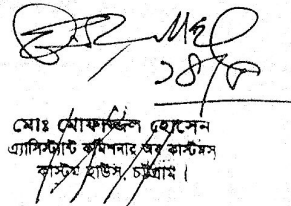 ১৪/৫
মোঃ মোফাজ্জল হোসেন
এ্যাসিস্ট্যান্ট কমিশনার অব কাস্টমস
কাস্টম হাউস, চট্টগ্রাম।